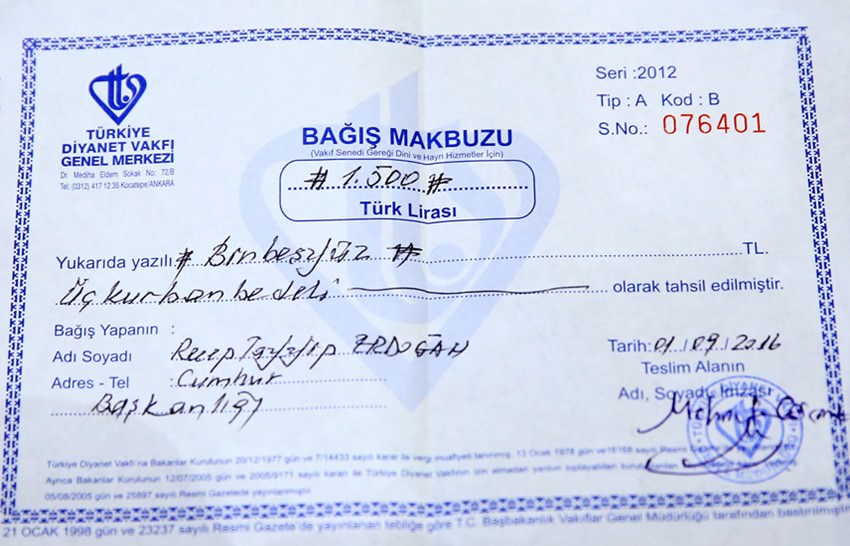 TÜRKİYE
DİYANET VAKFI
GENEL MERKEZİ
Dr. Mediha Eldem. Sokak No: 72/B
Tel: (0312) 417 12 35 Kocatepe/ANKARA
Seri :2012
Tip : A Kod : B
S.No.: 076401
BAĞIŞ MAKBUZU
(Vakıf Senedi Gereği Dini ve Hayri Hizmetler İçin)
# 1.500 #
Türk Lirası
Yukarıda yazılı # Binbeşyüz # TL.
Üç kurban bedeli olarak tahsil edilmiştir.
Bağış Yapanın :
Adı Soyadı Recep Tayyip ERDOĞAN
Adres - Tel : Cumhur
Başkanlığı
Tarih: 01/09/2016
Teslim Alanın
Adı, Soyadı İmzası
Mehmet
Türkiye Diyanet Vakfı'na Bakanlar Kurulunun 20/12/1977 gün ve 7/14433 sayılı kararı ile vergi muafiyeti tanınmış, 13 Ocak 1978 gün ve 16168 sayılı Resmi
Ayrıca Bakanlar Kurulunun 12/07/2005 gün ve 2005/9171 sayılı kararı ile Türkiye Diyanet Vakfının izin almadan yardım toplayabilen
05/08/2005 gün ve 25897 sayılı Resmi Gazetede yayınlanmıştır.
21 OCAK 1998 gün ve 23237 sayılı Resmi Gazete'de yayınlanan tebliğe göre T.C. Başbakanlık Vakıflar Genel Müdürlüğü tarafından bastırılmıştır